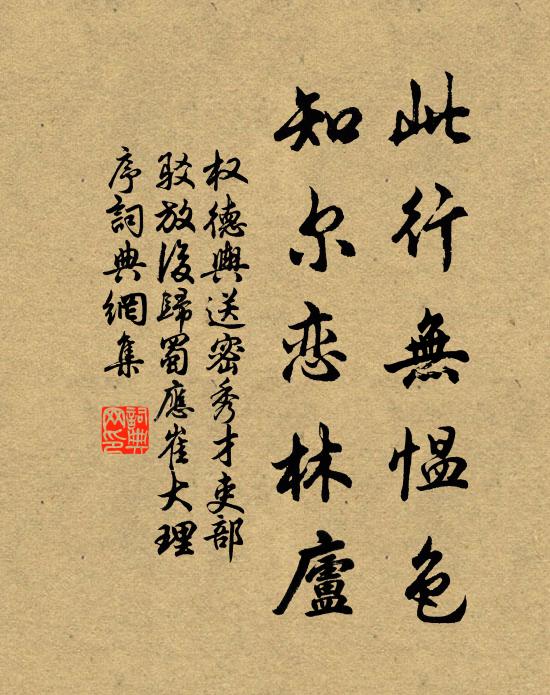 此行無愠色
知尔恋林廬
权德輿送密秀才吏部
驳放後歸蜀應崔大理
序詞典網集
詞典網印